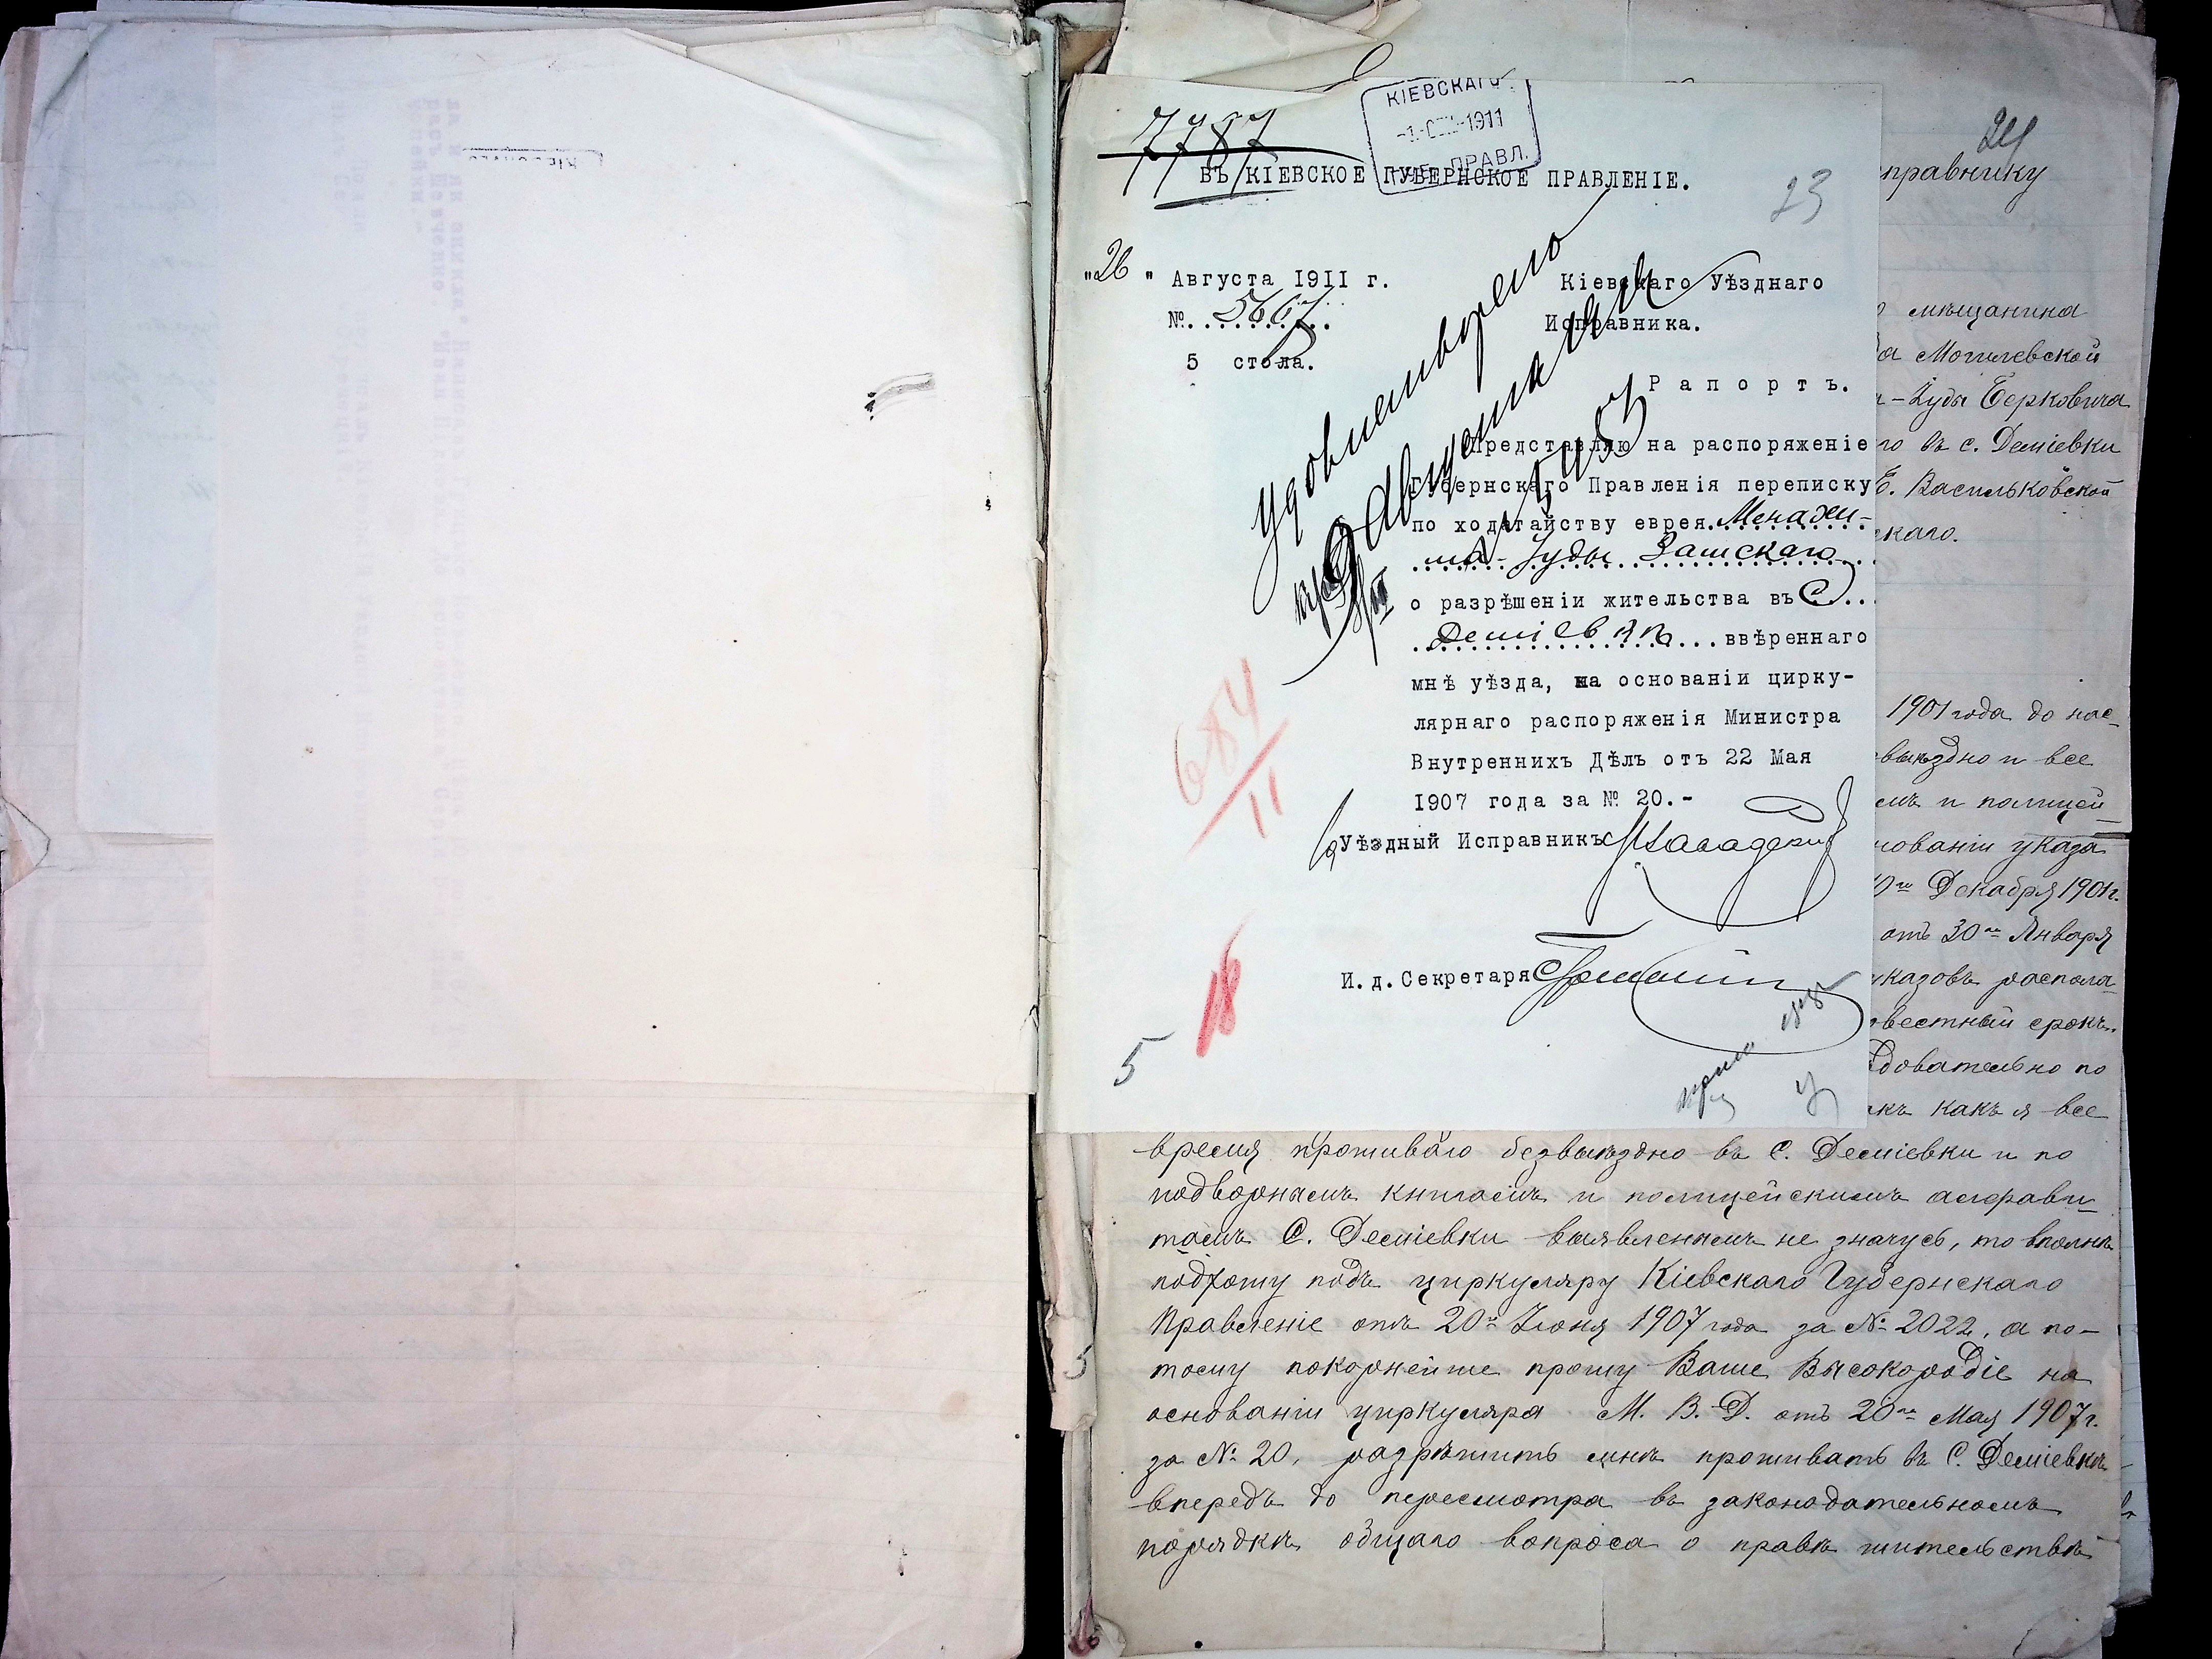 7787
КІЕВСКАГО
1911
ПРАВЛ.
ВЪ КІЕВСКОЕ ГУБЕРНСКОЕ ПРАВЛЕНІЕ.
23
"26" Августа 1911 г.
№ 5667
5 стола.
Кіевскаго Уѣзднаго
Исправника.
Рапортъ.
Представляю на распоряженіе
Губернскаго Правленія переписку
по ходатайству еврея Менахи-
ма-Іуды Зашскаго
о разрѣшеніи жительства въ С.
Деміевкѣ ввѣреннаго
мнѣ уѣзда, на основаніи цирку-
лярнаго распоряженія Министра
Внутреннихъ Дѣлъ отъ 22 Мая
1907 года за № 20.-
Уѣздный Исправникъ
И.д.Секретаря
удовлетворено
684/11
18
5
24
справнику
мѣщанина
Могилевской
-Іуды Берковича
въ с. Деміевки
Васильковской
скаго.
1901 года до нас-
выѣздно и все
и полицей-
нованіи указа
Декабря 1901г.
отъ 30го Января
указовъ распола-
вестный срокъ.
довательно по
какъ я все
время проживаю безвыѣздно въ С. Деміевки и по
подворнымъ книгамъ и полицейскимъ алфави-
тамъ С. Деміевки выявленнымъ не значусь, то вполнѣ
подхожу подъ циркуляру Кіевскаго Губернскаго
Правленіе отъ 20го Іюня 1907 года за № 2022, а по-
тому покорнѣйше прошу Ваше Высокородіе на
основаніи циркуляра М. В. Д. отъ 20го Мая 1907г.
за № 20, разрѣшить мнѣ проживать въ С. Деміевкѣ
впередъ до пересмотра въ законодательномъ
порядкѣ общаго вопроса о правѣ жительствѣ